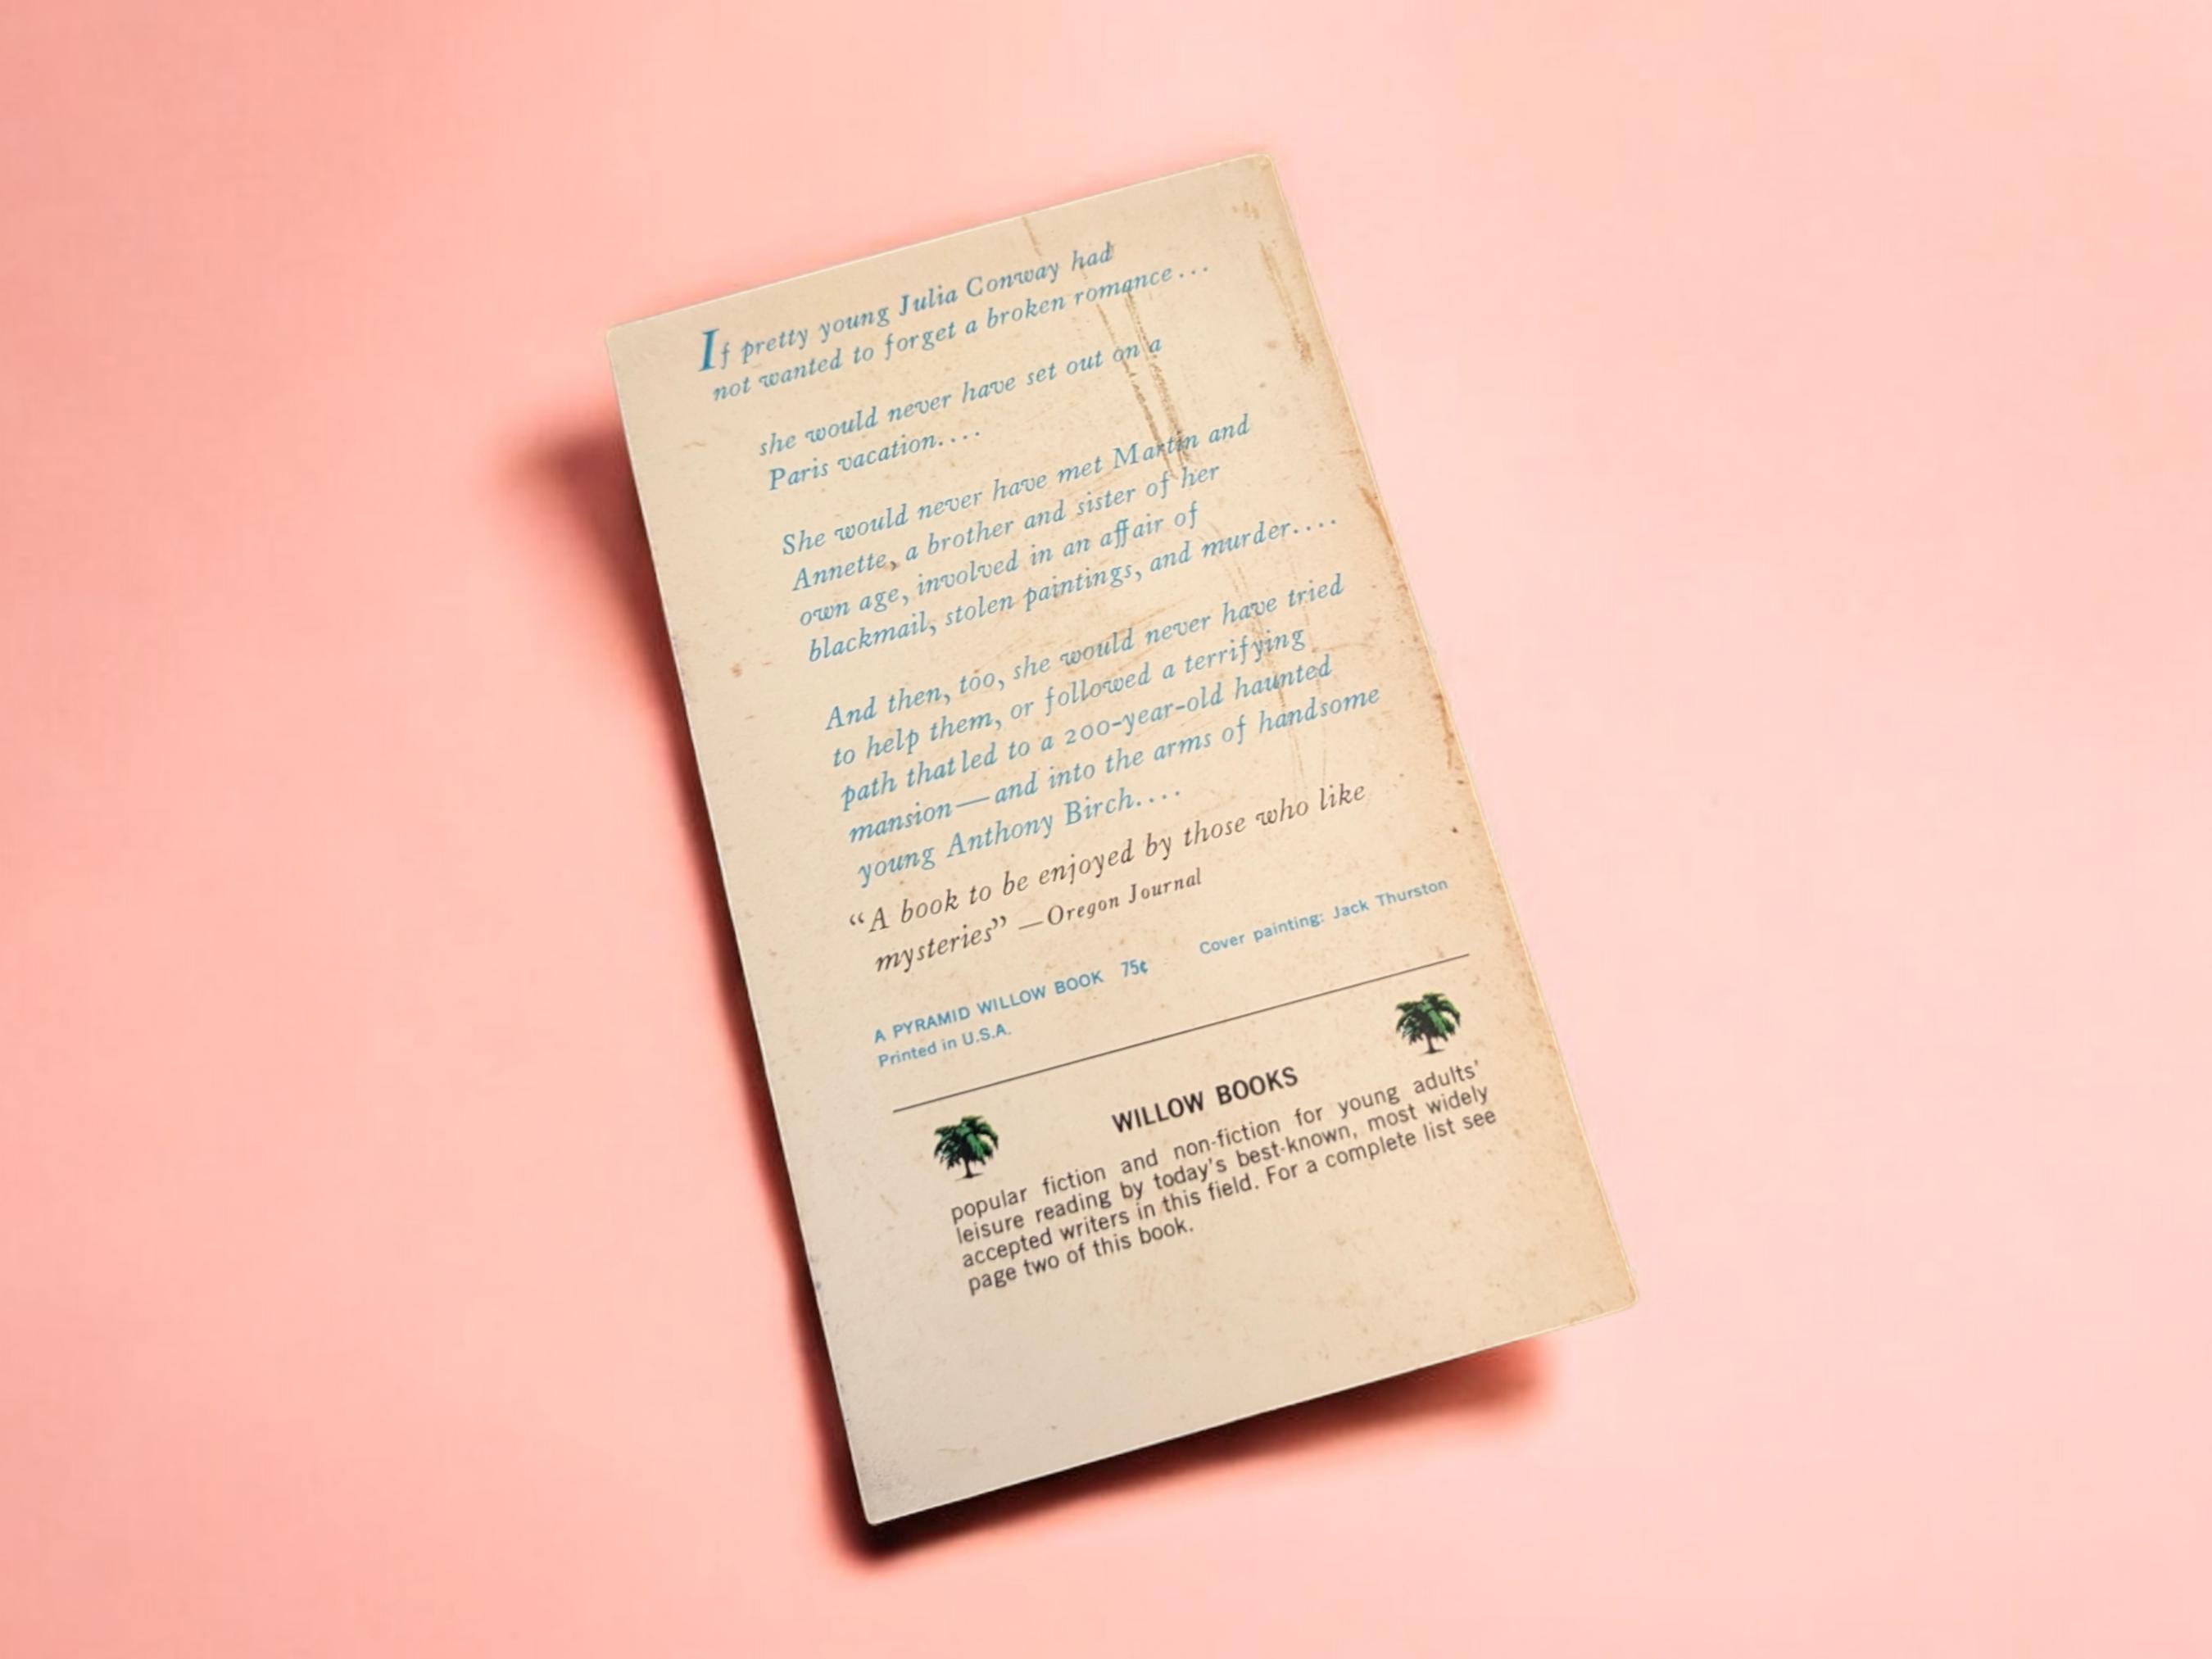 If pretty young Julia Conway had
not wanted to forget a broken romance...
she would never have set out on a
Paris vacation....
She would never have met Martin and
Annette, a brother and sister of her
own age, involved in an affair of
blackmail, stolen paintings, and murder....
And then, too, she would never have tried
to help them, or followed a terrifying
path that led to a 200-year-old haunted
mansion—and into the arms of handsome
young Anthony Birch....
“A book to be enjoyed by those who like
mysteries” —Oregon Journal
A PYRAMID WILLOW BOOK 75¢ Cover painting: Jack Thurston
Printed in U.S.A.
WILLOW BOOKS
popular fiction and non-fiction for young adults'
leisure reading by today's best-known, most widely
accepted writers in this field. For a complete list see
page two of this book.